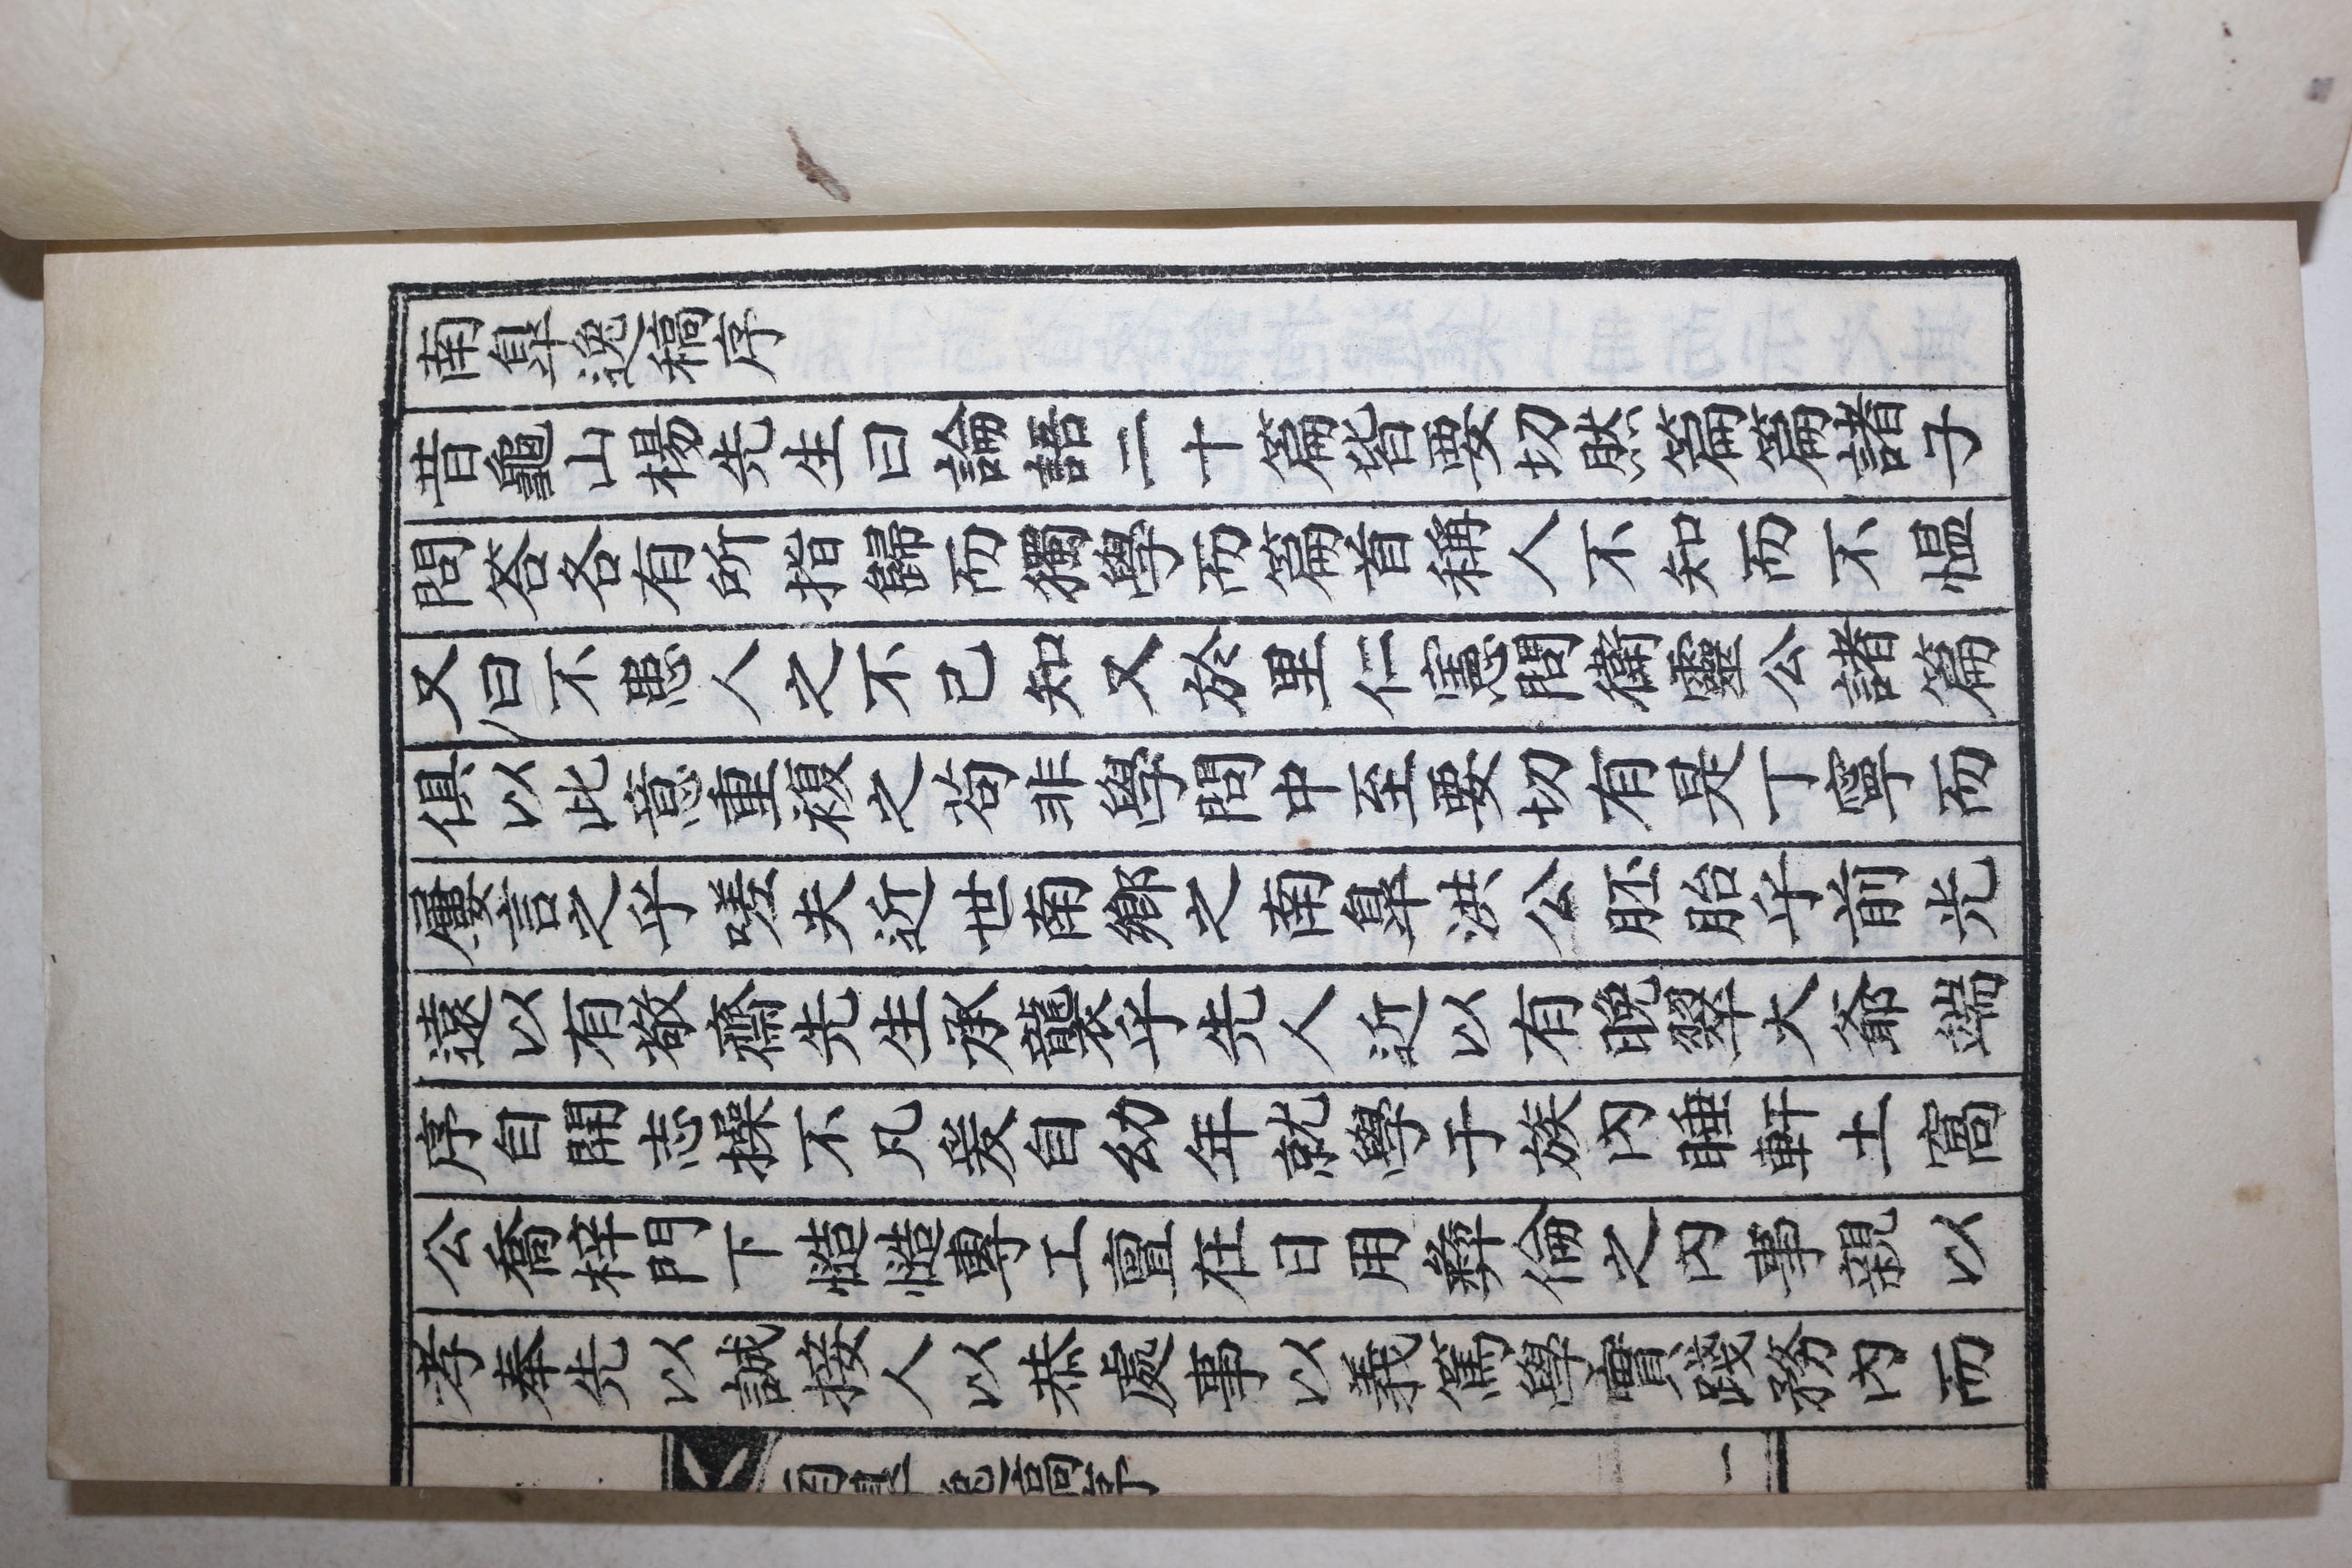 南皐逸稿序
昔龜山楊先生曰論語二十篇皆要切然篇篇諸子
問答各有所指歸而獨學而篇首稱人不知而不慍
又曰不患人之不己知又於里仁憲問衛靈公諸篇
俱以此意重複之苟非學問中至要切有是丁寧而
屢言之乎嗟夫近世南鄉之南皐洪公胚胎乎前光
遠以有敬齋先生承襲乎先人近以有晩翠大爺端
序自開志操不凡爰自幼年就學于族內睡軒土窩
公喬梓門下慥慥專工亶在日用彝倫之內事親以
孝奉先以誠接人以恭處事以義篤學實踐務內而
南皐逸稿序
一